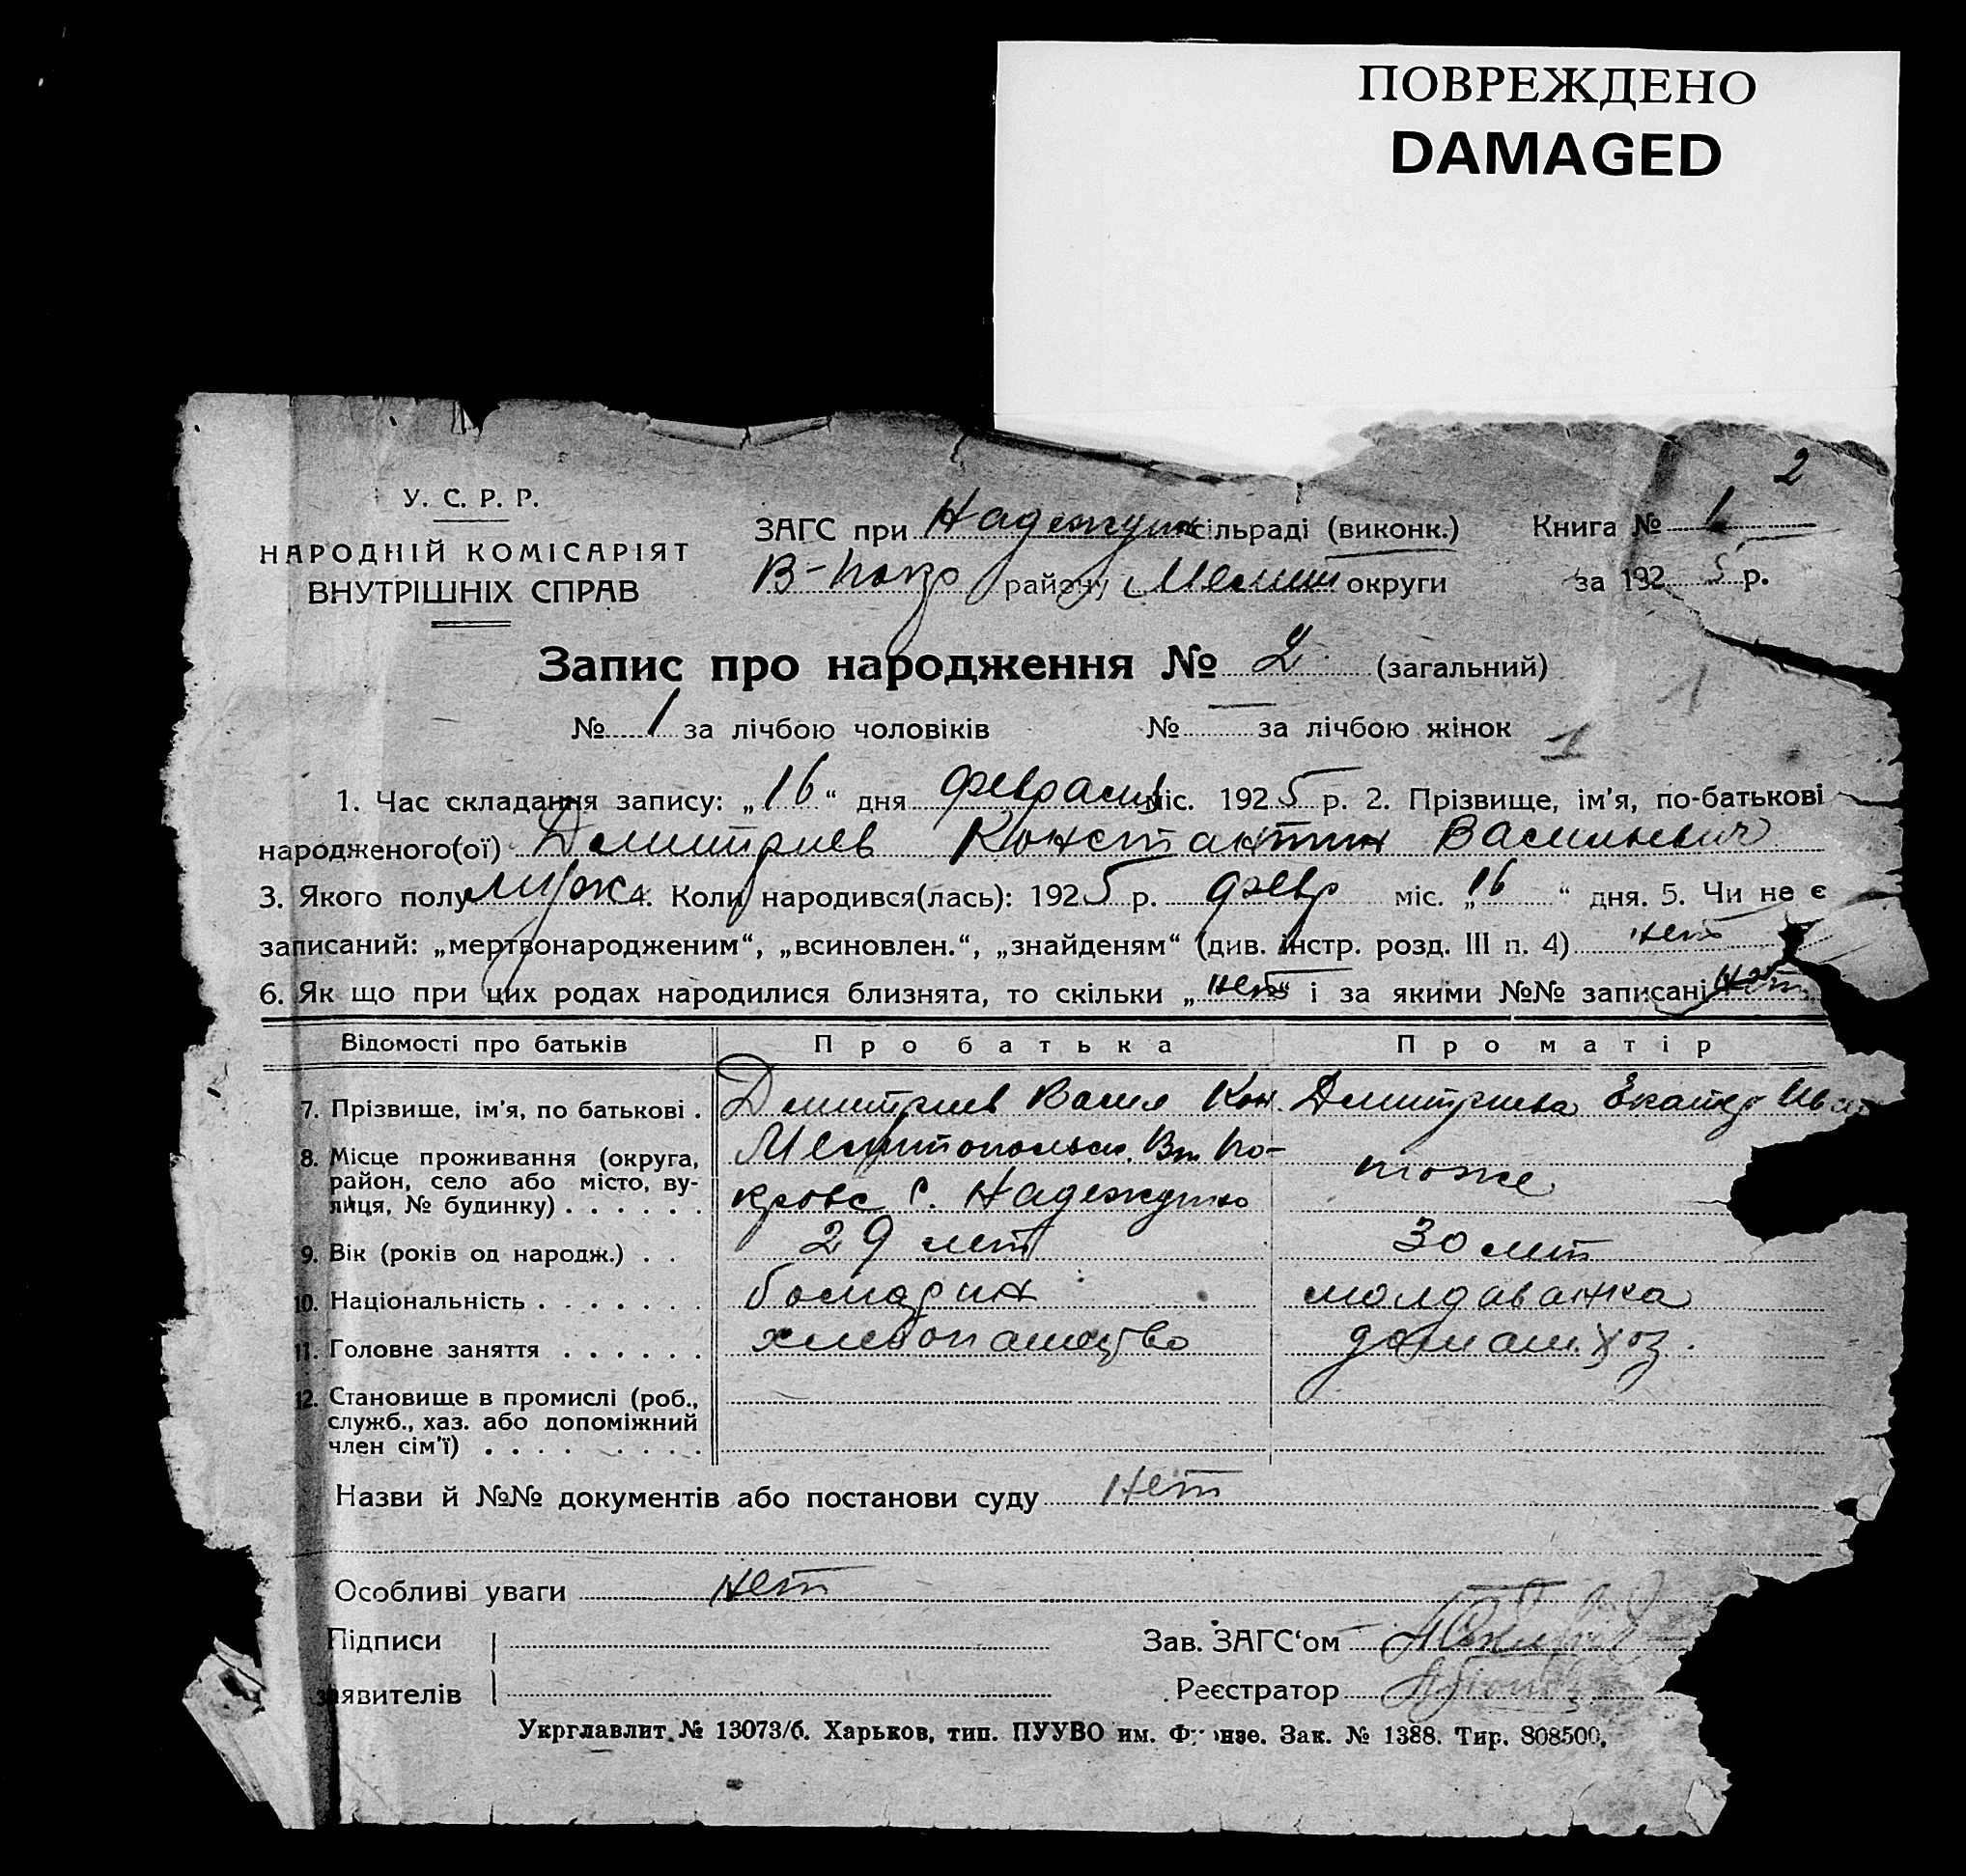 ПОВРЕЖДЕНО
DAMAGED
2
У. С. Р. Р.
НАРОДНІЙ КОМІСАРІЯТ
ВНУТРІШНІХ СПРАВ
ЗАГС при Надеждин сільраді (виконк.) Книга № 1
В-Покр району Мелит округи за 1925 р.
Запис про народження № 2 (загальний)
№ 1 за лічбою чоловіків № — за лічбою жінок 1
1
1. Час складання запису: „16“ дня февраля міс. 1925 р. 2. Прізвище, ім'я, по-батькові
народженого(ої) Демитриев Константин Васильевич
3. Якого полу мужс 4. Коли народився(лась): 1925 р. февр міс. „16“ дня. 5. Чи не є
записаний: „мертвонародженим“, „всиновлен.“, „знайденям“ (див. інстр. розд. III п. 4) нет
6. Як що при цих родах народилися близнята, то скільки „нет“ і за якими №№ записані нет
Відомості про батьків Про батька Про матір
7. Прізвище, ім'я, по батькові . Демитриев Васил Кон. Демитриева Екатер Ив
8. Місце проживання (округа, район, село або місто, вулиця, № будинку) . . . . . . Мелитопольск. Вт. По-
кровс с. Надеждино тоже
9. Вік (років од народж.) . . 29 лет 30 лет
10. Національність . . . . . . . болгарин молдаванка
11. Головне заняття . . . . . . хлебопашество домаш. хоз.
12. Становище в промислі (роб.,
служб., хаз. або допоміжний
член сім'ї) . . . . . . . .
Назви й №№ документів або постанови суду нет
Особливі уваги нет
Підписи Зав. ЗАГС'ом
заявителів Реєстратор
Укрглавлит № 13073/б. Харьков, тип. ПУУВО им. Фрунзе. Зак. № 1388. Тир. 808500.